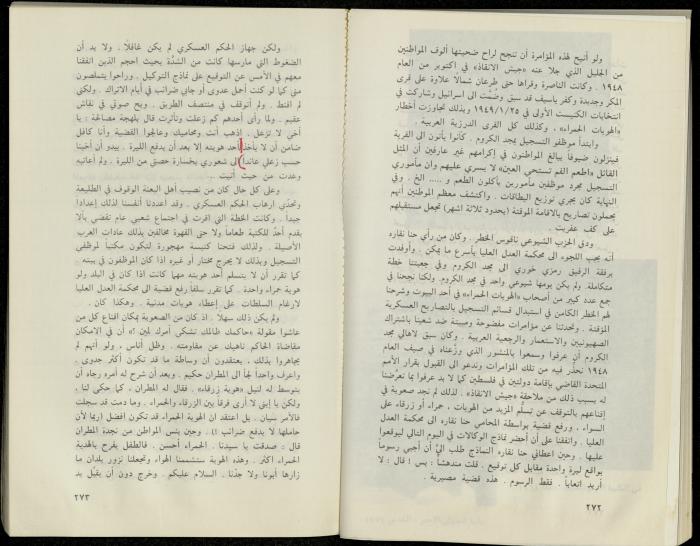 ولو أتيح لهذه المؤامرة أن تنجح لراح ضحيتها ألوف المواطنين
من الجليل الذي جلا عنه «جيش الانقاذ» في اكتوبر من العام
١٩٤٨ . وكانت الناصرة وقراها حتى طرعان شمالاً علاوة على قرى
المكر وجديدة وكفر ياسيف قد سبق وضُمّت الى اسرائيل وشاركت في
انتخابات الكنيست الأولى في ١٩٤٩/١/٢٥ وبذلك تجاوزت أخطار
«الهويات الحمراء» ، وكذلك كل القرى الدرزية العربية .
وابتدأ موظفو التسجيل بمجد الكروم . كانوا يأتون الى القرية
فينزلون ضيوفاً يبالغ المواطنون في إكرامهم غير عارفين أن المثل
القائل «اطعم الفم تستحي العين» لا يسري عليهم وان مأموري
التسجيل مجرد موظفين مأمورين يأكلون الطعم و ..... الخ . وفي
النهاية كان يجري توزيع البطاقات . واكتشف معظم المواطنين أنهم
يحملون تصاريح بالاقامة الموقتة (بحدود ثلاثة اشهر) تجعل مستقبلهم
على كف عفريت .
ودق الحزب الشيوعي ناقوس الخطر . وكان من رأي حنا نقاره
أنه يجب اللجوء الى محكمة العدل العليا بأسرع ما يمكن . وأوفدت
برفقة الرفيق رمزي خوري الى مجد الكروم وفي جعبتنا خطة
متكاملة . ولم يكن يومها شيوعي واحد في مجد الكروم. ولكنا نجحنا في
جمع عدد كبير من أصحاب «الهويات الحمراء» في أحد البيوت وشرحنا
لهم الخطر الكامن في استبدال قسائم التسجيل بالتصاريح العسكرية
المؤقتة . وتحدثنا عن مؤامرات مفضوحة ومبيتة ضد شعبنا باشتراك
الصهيونيين والاستعمار والرجعية العربية . وكان سبق لاهالي مجد
الكروم أن عرفوا وسمعوا بالمنشور الذي وزّعناه في صيف العام
١٩٤٨ نحذّر فيه من تلك المؤامرات وندعو الى القبول بقرار الأمم
المتحدة القاضي بإقامة دولتين في فلسطين كما لا بد عرفوا بما تعرّضنا
له بسبب ذلك من ملاحقة «جيش الانقاذ» . لذلك لم نجد صعوبة في
إقناعهم بالتوقف عن تسلّم المزيد من الهويات ، حمراء أو زرقاء على
السواء ، ورفع قضية بواسطة المحامي حنا نقاره الى محكمة العدل
العليا . واتفقنا على أن أحضر نماذج الوكالات في اليوم التالي ليوقعوا
عليها . وحين اعطاني حنا نقاره النماذج طلب اليّ أن أجبي رسوماً
بواقع ليرة واحدة مقابل كل توقيع . قلت مندهشاً : بس ! قال : لا
أريد اتعاباً . فقط الرسوم . هذه قضية مصيرية .
٢٧٢
ولكن جهاز الحكم العسكري لم يكن غافلاً . ولا بد أن
الضغوط التي مارسها كانت من الشدّة بحيث احجم الذين اتفقنا
معهم في الأمس عن التوقيع على نماذج التوكيل . وراحوا يتملصون
مني كما لو كنت أحمل عدوى أو جابي ضرائب في أيام الاتراك . ولكني
لم اقنط . ولم أتوقف في منتصف الطريق . وبح صوتي في نقاش
عقيم . ولما رأى أحدهم كم زعلت وتأثرت قال بلهجة مصالحة : يا
أخي لا تزعل . اذهب أنت ومحاميك وعالجوا القضية وأنا كافل
ضامن أن لا يأخذ أحد هويته إلا بعد أن يدفع الليرة . يبدو أن أخينا
حسب زعلي عائداً الى شعوري بخسارة حصتي من الليرة . ولم أعاتبه
وعدت من حيث أتيت ..
وعلى كل حال كان من نصيب أهل البعنة الوقوف في الطليعة
وتحدّي ارهاب الحكم العسكري . وقد اعددنا أنفسنا لذلك إعدادا
جيدا . وكانت الخطة التي اقرت في اجتماع شعبي عام تقضي بألا
يقدم أحدٌ للكتبة طعاماً ولا حتى القهوة مخالفين بذلك عادات العرب
الأصيلة . ولذلك فتحنا كنيسة مهجورة لتكون مكتباً لموظفي
التسجيل وبذلك لا يحرج مختار أو غيره اذا كان الموظفون في بيته .
كما تقرر أن لا يتسلم أحد هويته مهما كانت اذا كان في البلد ولو
هوية حمراء واحدة . كما تقرر سلفاً رفع قضية الى محكمة العدل العليا
لارغام السلطات على إعطاء هويات مدنية . وهكذا كان .
ولم يكن ذلك سهلا . اذ كان من الصعوبة بمكان اقناع كل من
عاشوا مقولة «حاكمك ظالمك تشكي أمرك لمين ؟» أن في الامكان
مقاضاة الحكم ناهيك عن مقاومته . وظل أناس ، ولو أنهم لم
يجاهروا بذلك ، يعتقدون أن وساطة ما قد تكون أكثر جدوى .
واعرف واحداً لجأ الى المطران حكيم . وبعد أن شرح له أمره رجاه أن
يتوسط له لنيل «هوية زرقاء» . فقال له المطران ، كما حكى لنا ،
ولكن يا إبني لا أرى فرقا بين الزرقاء والحمراء . وما دمت قد سجلت
فالأمر سيان . بل اعتقد ان الهوية الحمراء قد تكون افضل اربما لأن
حاملها لا يدفع ضرائب !! . وحين يئس المواطن من نجدة المطران
قال : صدقت يا سيدنا . الحمراء أحسن . فالطفل يفرح بالهدية
الحمراء اكثر . وهذه الهوية ستشممنا الهواء وتجعلنا نزور بلدان ما
زارها أبونا ولا جدّنا . السلام عليكم . وخرج دون أن يقبّل يد
٢٧٣